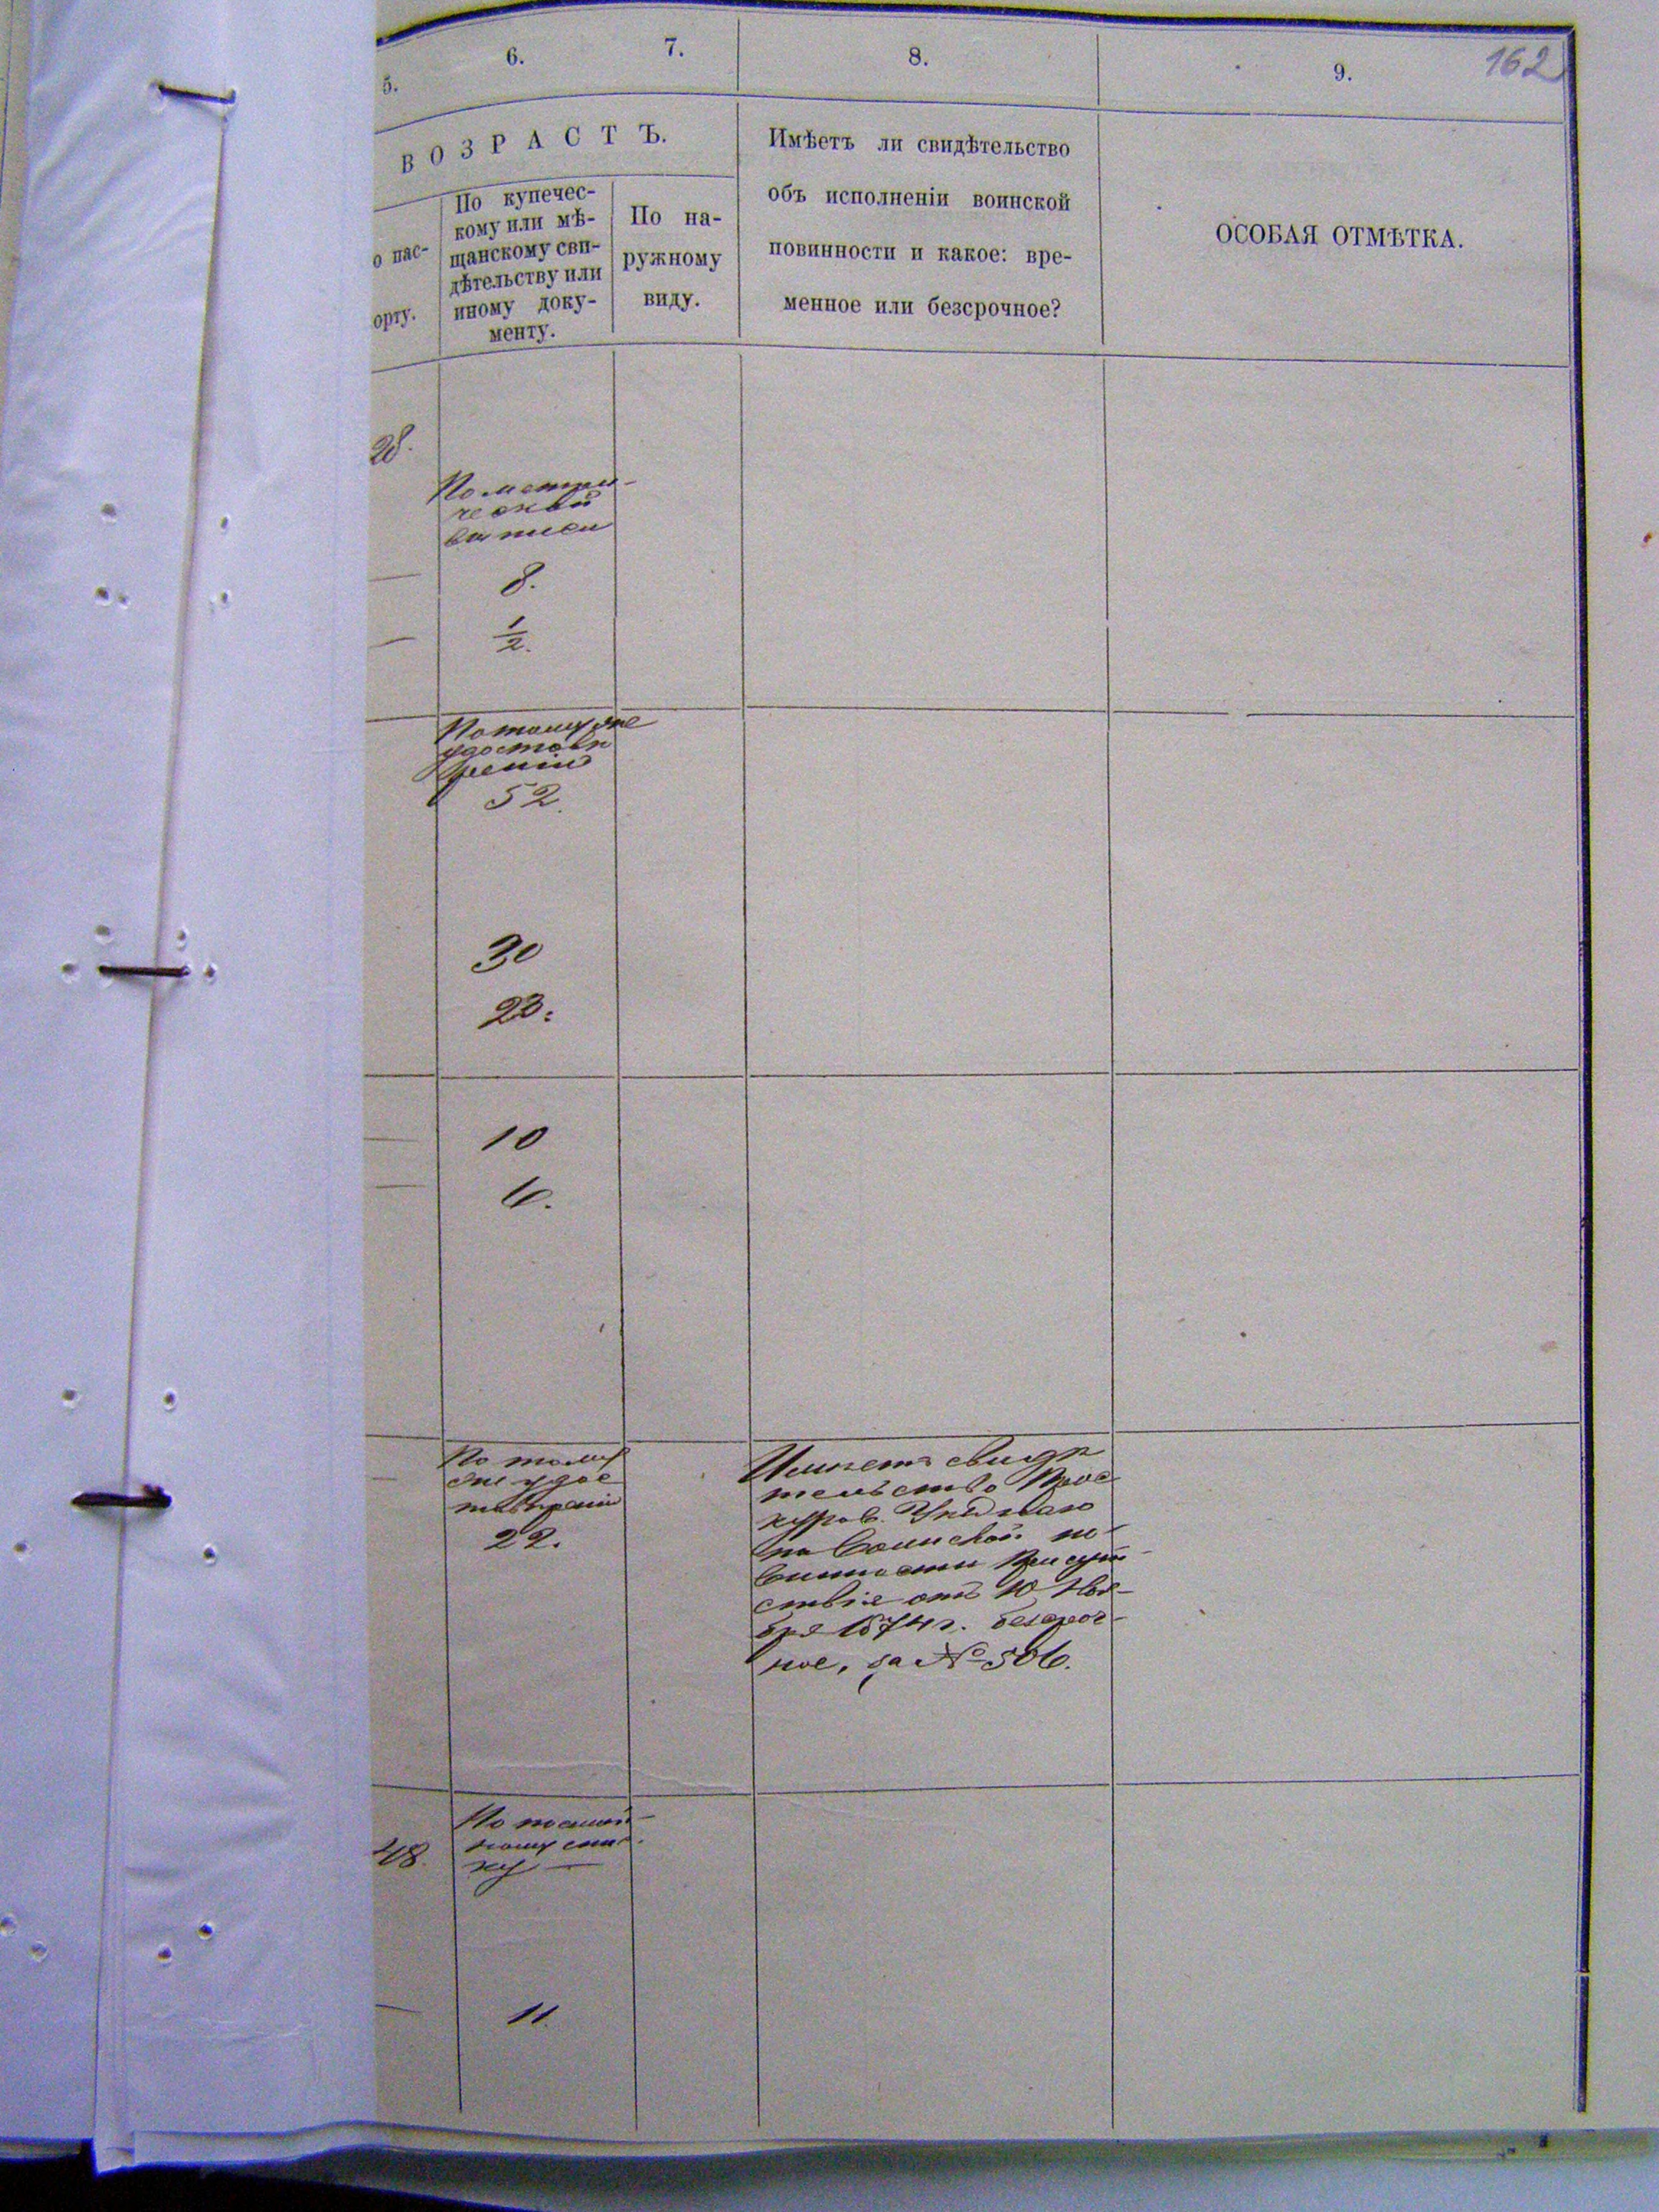 162
5.
6.
7.
8.
9.
ВОЗРАСТЪ.
о пас-
орту.
По купечес-
кому или мѣ-
щанскому сви-
дѣтельству или
иному доку-
менту.
По на-
ружному
виду.
Имѣетъ ли свидѣтельство
объ исполненіи воинской
повинности и какое: вре-
менное или безсрочное?
ОСОБАЯ ОТМѢТКА.
28.
По метри-
ческой
выписи
8.
1/2.
По тому же
удостовѣ
ренію
52.
30
23.
10
6.
По тому
же удос
товѣренію
22.
Имѣетъ свидѣ
тельство Прос
куров. Уѣзднаго
по воинской по-
винности Присут-
ствія отъ 10 Ноя-
бря 1874 г. безсроч-
ное, за № 506.
48.
По посемей-
ному спис-
ку —
11